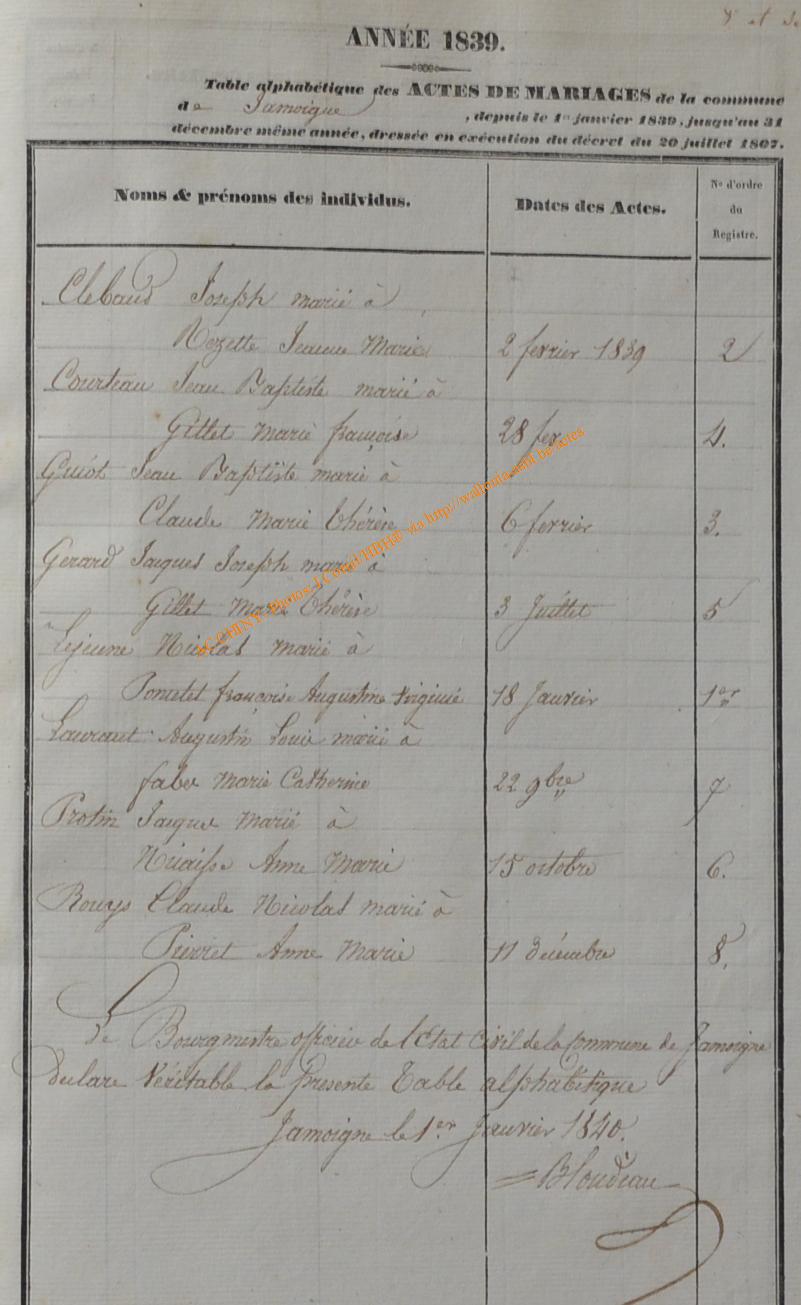 ANNÉE 1839.
Table alphabétique des ACTES DE MARIAGES de la commune
de Jamoigne, depuis le 1er janvier 1839, jusqu'au 31
décembre même année, dressée en exécution du décret du 20 juillet 1807.
Noms & prénoms des individus. Dates des Actes. No d'ordre du Registre.
Clebaud Joseph marié à
Rozette Jeanne Marie 2 fevrier 1839 2
Courteau Jean Baptiste marié à
Gillet Marie françoise 28 fev 4.
Guiot Jean Baptiste marié à
Claude Marie Thérèse 6 fevrier 3.
Gerard Jacques Joseph marié à
Gillet Marie Thérèse 3 Juillet 5
Lejeune Nicolas marié à
Poncelet françoise Augustine Virginie 18 Janvier 1er
Laurant Augustin Louis marié à
faber Marie Catherine 22 9bre 7
Protin Jacques Marié à
Anne Marie 15 octobre 6.
Claude Nicolas marié à
Pierret Anne Marie 11 décembre 8.
Le Bourgmestre officier de l'Etat Civil de la Commune de Jamoigne
declare Véritable la presente Table alphabétique
Jamoigne le 1er Janvier 1840.
Blondeau